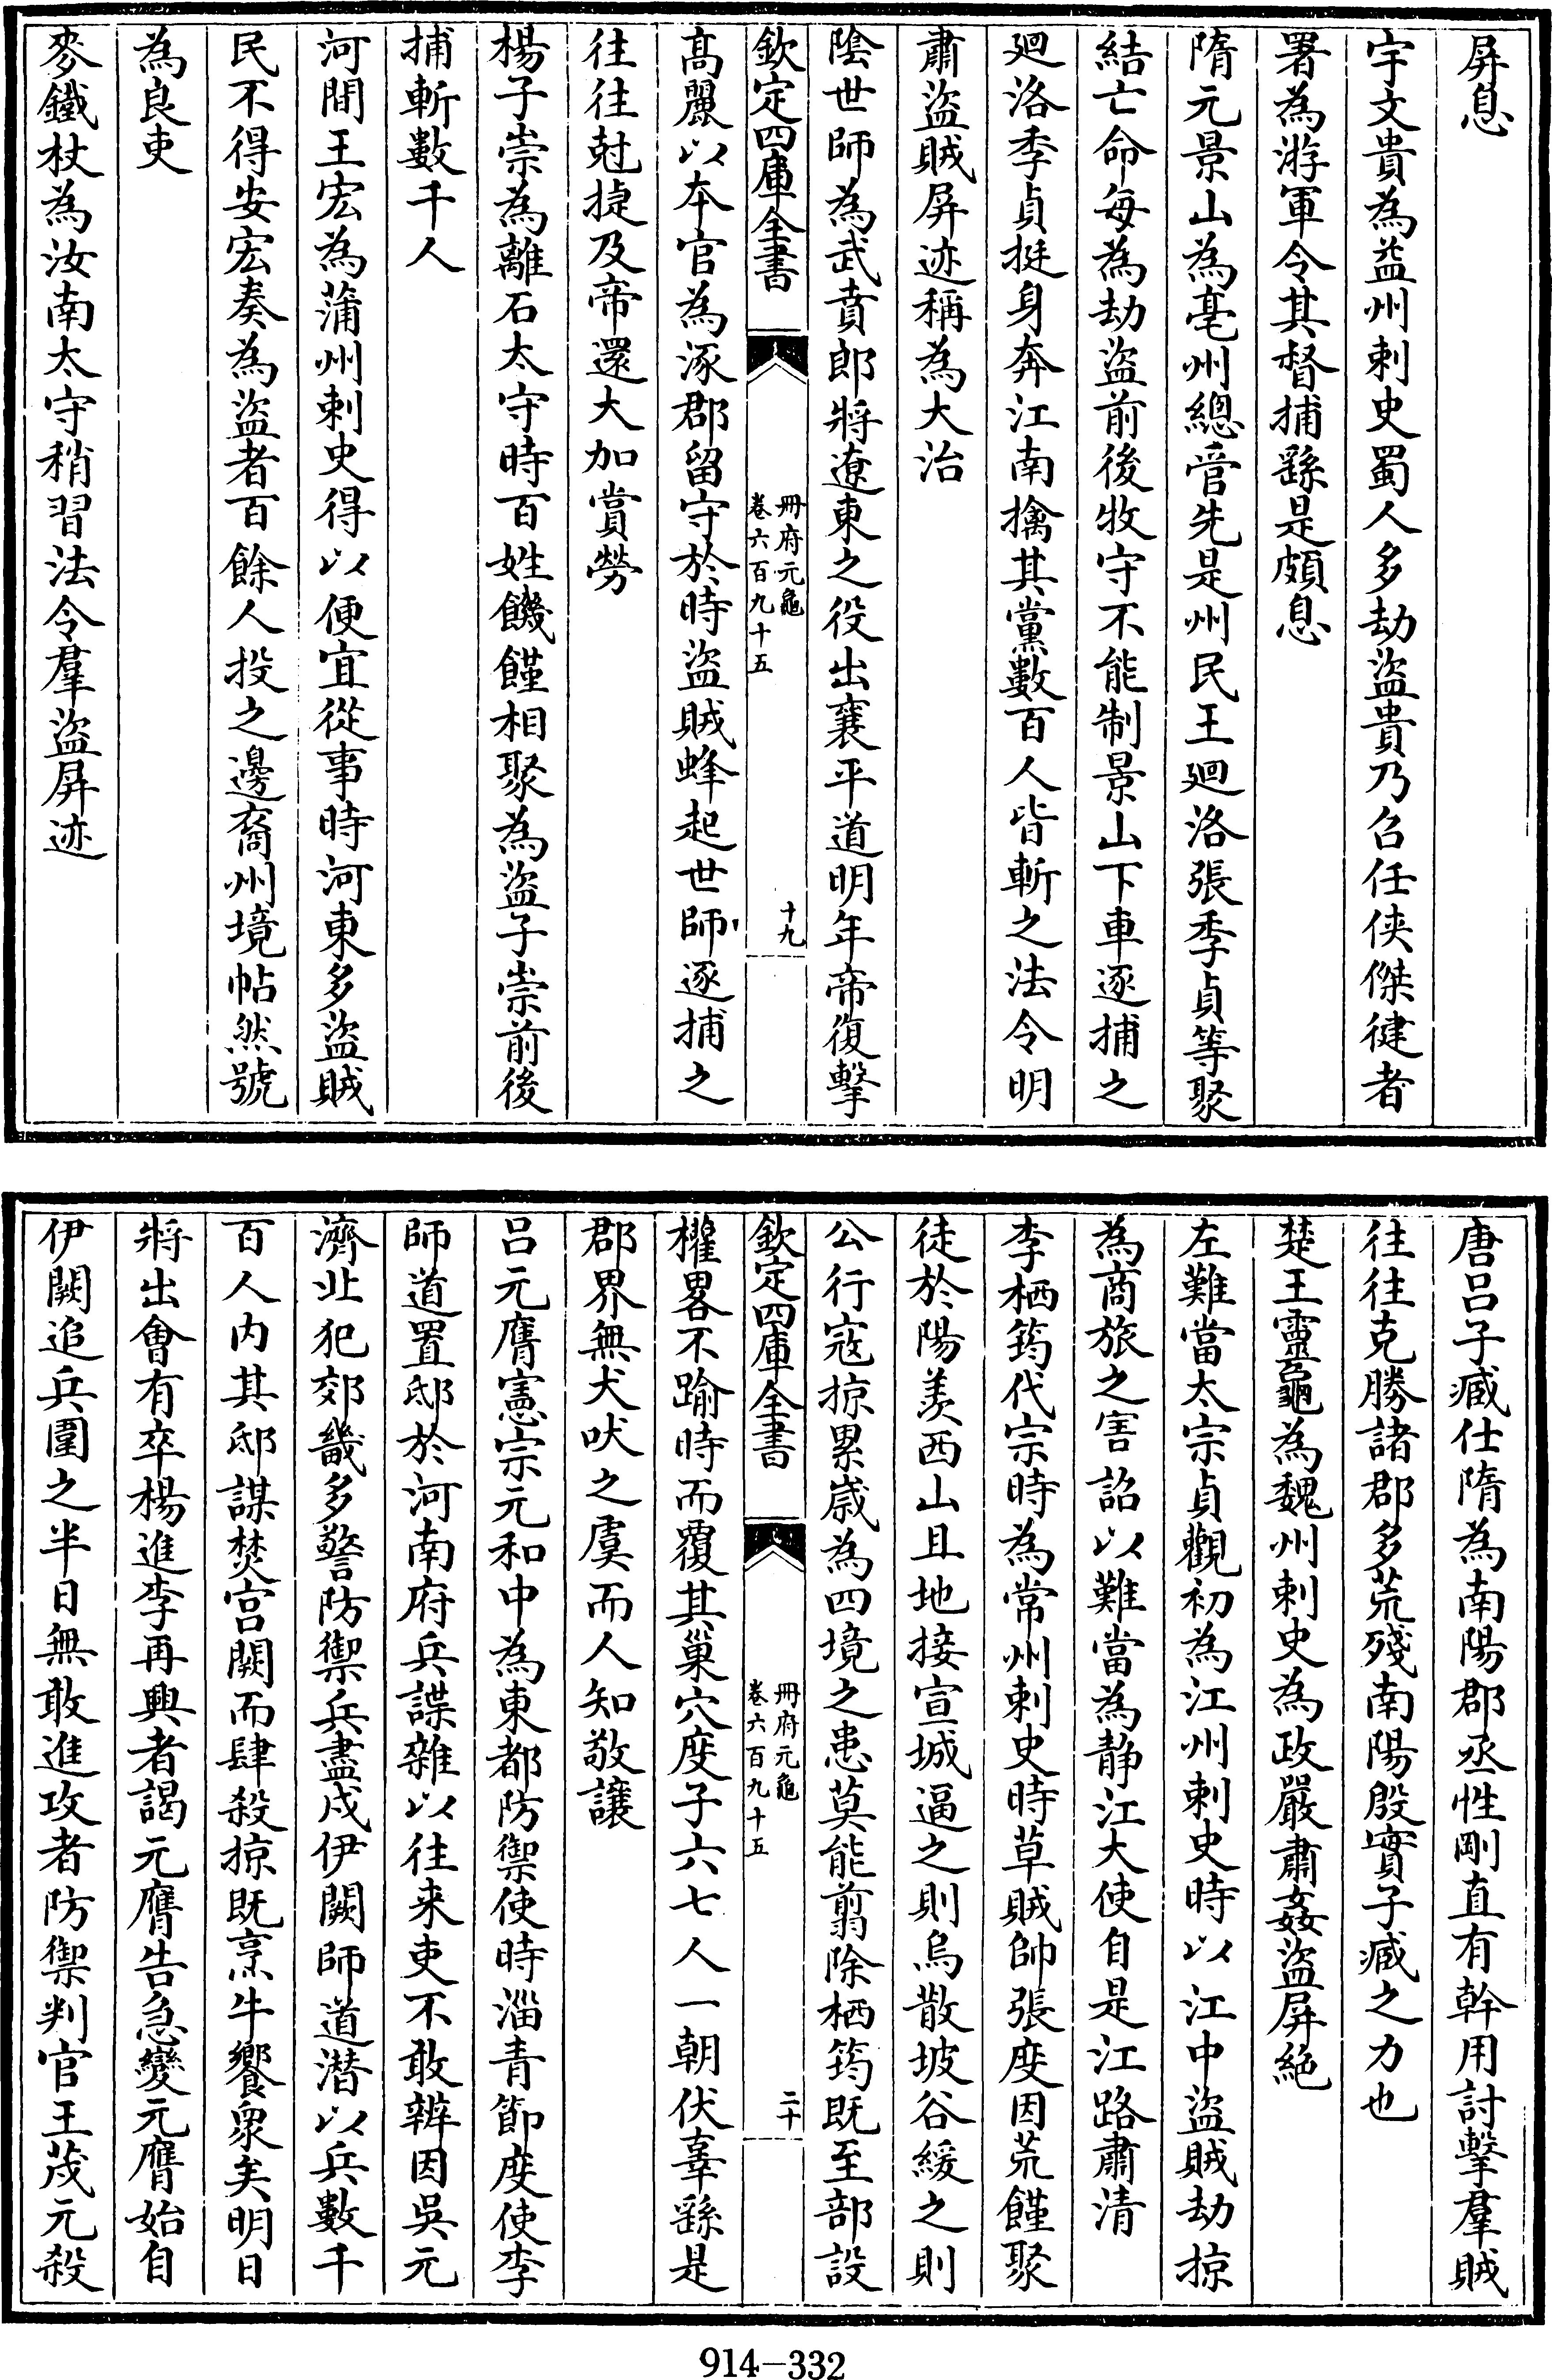 屏息
宇文貴為益州刺史蜀人多劫盜貴乃召任俠傑徤者
署為游軍令其督捕繇是頗息
隋元景山為亳州總管先是州民王廻洛張季貞等聚
結亡命每為劫盜前後牧守不能制景山下車逐捕之
廻洛季貞挺身奔江南擒其黨數百人皆斬之法令明
肅盜賊屏迹稱為大治
陰世師為武賁郎將遼東之役出襄平道明年帝復擊
欽定四庫全書
冊府元龜
卷六百九十五
十九
高麗以本官為涿郡留守於時盜賊蜂起世師逐捕之
往往尅捷及帝還大加賞勞
楊子崇為離石太守時百姓饑饉相聚為盜子崇前後
捕斬數千人
河間王宏為蒲州刺史得以便宜從事時河東多盜賊
民不得安宏奏為盜者百餘人投之邊裔州境帖然號
為良吏
麥鐵杖為汝南太守稍習法令羣盜屏迹
唐呂子臧仕隋為南陽郡丞性剛直有幹用討擊羣賊
往往克勝諸郡多荒殘南陽殷實子臧之力也
楚王靈龜為魏州刺史為政嚴肅姦盜屏絕
左難當太宗貞觀初為江州刺史時以江中盜賊劫掠
為商旅之害詔以難當為静江大使自是江路肅清
李栖筠代宗時為常州刺史時草賊帥張度因荒饉聚
徒於陽羨西山且地接宣城逼之則烏散坡谷緩之則
公行寇掠累嵗為四境之患莫能翦除栖筠既至部設
欽定四庫全書
冊府元龜
卷六百九十五
二十
櫂畧不踰時而覆其巢穴度子六七人一朝伏辜繇是
郡界無犬吠之虞而人知敬讓
呂元膺憲宗元和中為東都防禦使時淄青節度使李
師道置邸於河南府兵諜雜以往来吏不敢辨因吳元
濟北犯郊畿多警防禦兵盡戍伊闕師道潛以兵數千
百人内其邸謀焚宫闕而肆殺掠既烹牛饗衆矣明日
將出會有卒楊進李再興者謁元膺告急變元膺始自
伊闕追兵圍之半日無敢進攻者防禦判官王茂元殺
914-332